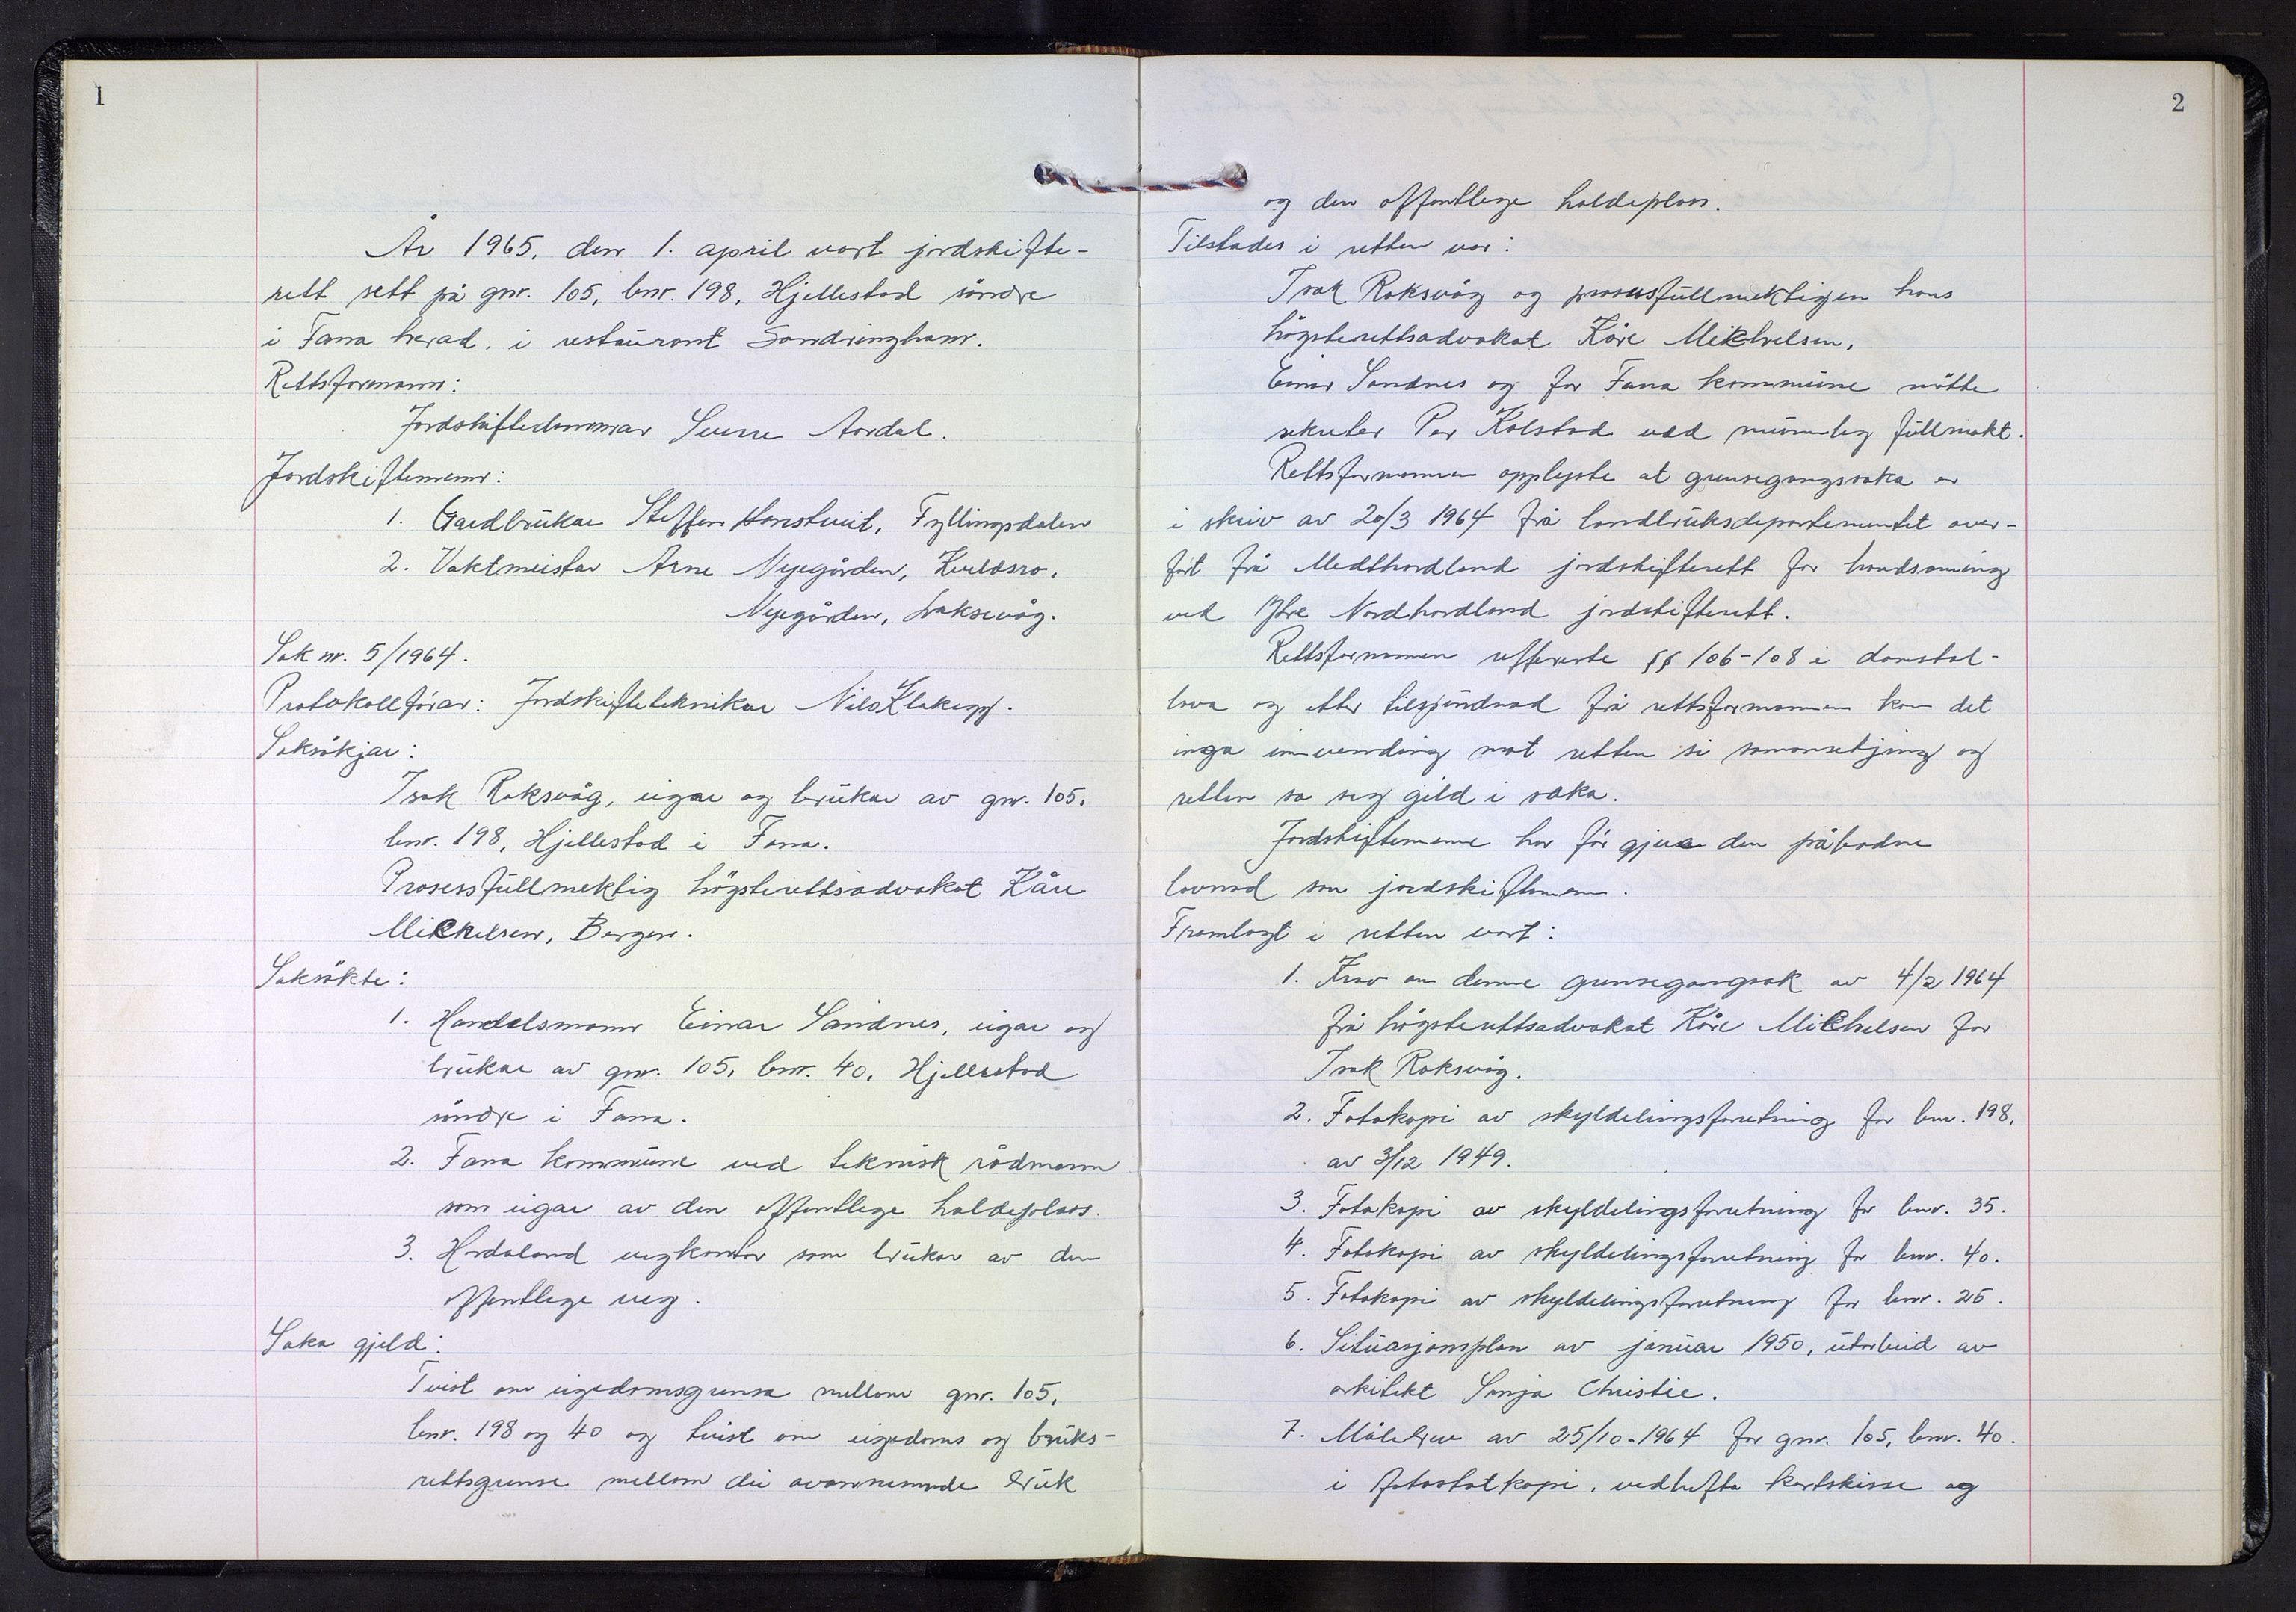 1
År 1965, den 1. april vart jordskifte-
rett sett på gnr. 105, bnr. 198, Hjellestad söndre
i Fana herad, i restaurant Sandringham.
Rettsformann:
Jordskiftedommar Sverre Aardal.
Jordskiftemenn:
1. Gardbrukar Steffen Hanstveit, Fyllingsdalen
2. Vaktmeistar Arne Nygården, Kveldsro,
Nygården, Laksevåg.
Sak nr. 5/1964.
Protokollförar: Jordskifteteknikar Nils Klakegg.
Saksökjar:
Isak Roksvåg, eigar og brukar av gnr. 105,
bnr. 198, Hjellestad i Fana.
Prosessfullmektig högsterettsadvokat Kåre
Mickelsen, Bergen.
Saksökte:
1. Handelsmann Einar Sandnes, eigar og
brukar av gnr. 105, bnr. 40, Hjellestad
söndre i Fana.
2. Fana kommune ved teknisk rådmann
som eigar av den offentlege haldeplass.
3. Hordaland vegkontor som brukar av den
offentlege veg.
Saka gjeld:
Tvist om eigedomsgrensa mellom gnr. 105,
bnr. 198 og 40 og tvist om eigedoms og bruks-
rettsgrense mellom dei ovannemnde bruk
2
og den offentlege haldeplass.
Tilstades i retten var:
Isak Roksvåg og prosessfullmektigen hans
högsterettsadvokat Kåre Mikhelsen,
Einar Sandnes og for Fana kommune mötte
sekretær Per Kolstad ved munnleg fullmakt.
Rettsformannen opplyste at grensegangsaka er
i skriv av 20/3 1964 frå landbruksdepartementet over-
fört frå Midthordland jordskifterett for handsaming
ved Ytre Nordhordland jordskifterett.
Rettsformannen refererte §§ 106-108 i domstol-
lova og etter tilspurnad frå rettsformannen kom det
inga innvending mot retten si samansetjing og
retten sa seg gild i saka.
Jordskiftemenne har för gjeve den påbodne
lovnad som jordskiftemenn.
Framlagt i retten vart:
1. Krav om denne grensegangsak av 4/2 1964
frå högsterettsadvokat Kåre Mikhelsen for
Isak Roksvåg.
2. Fotokopi av skyldelingsforretning for bnr. 198,
av 3/12 1949.
3. Fotokopi av skyldelingsforretning for bnr. 35.
4. Fotokopi av skyldelingsforretning for bnr. 40.
5. Fotokopi av skyldelingsforretning for bnr. 25.
6. Situasjonsplan av januar 1950, utarbeid av
arkitekt Sinja Christie.
7. Målebrev av 25/10-1964 for gnr. 105, bnr. 40.
i fotostatkopi, vedhefta kartskisse og